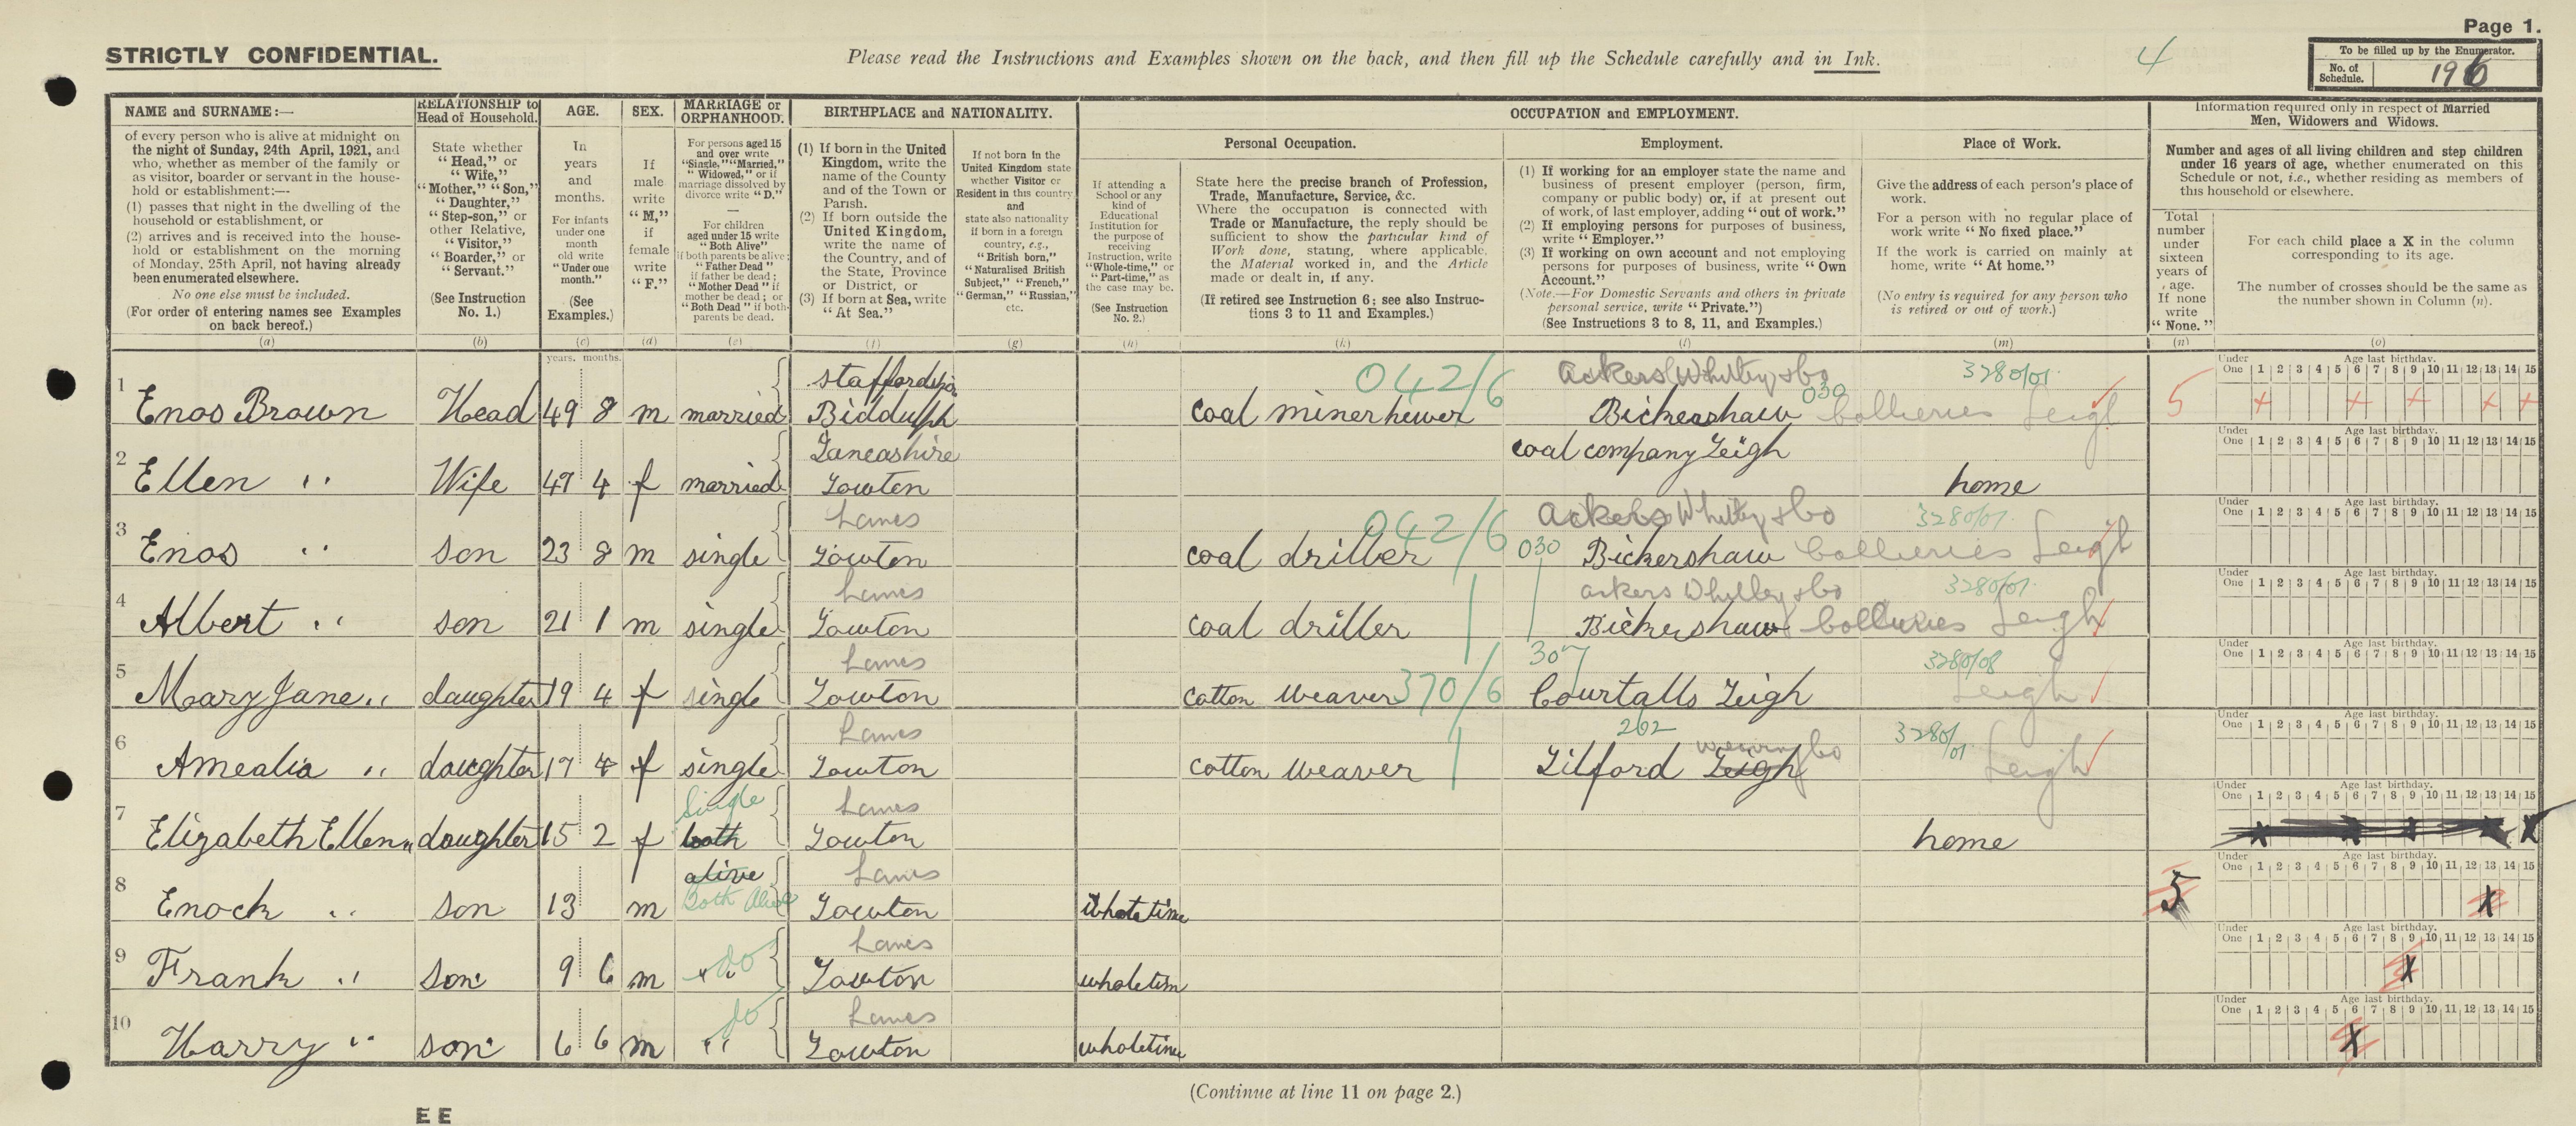 Page 1.
STRICTLY CONFIDENTIAL.
Please read the Instructions and Examples shown on the back, and then fill up the Schedule carefully and in Ink.
4
To be filled up by the Enumerator.
No. of Schedule.
NAME and SURNAME:—
of every person who is alive at midnight on
the night of Sunday, 24th April, 1921, and
who, whether as member of the family or
as visitor, boarder or servant in the house-
hold or establishment:—
(1) passes that night in the dwelling of the
household or establishment, or
(2) arrives and is received into the house-
hold or establishment on the morning
of Monday, 25th April, not having already
been enumerated elsewhere.
No one else must be included.
(For order of entering names see Examples
on back hereof.)
(a)
RELATIONSHIP to
Head of Household.
State whether
"Head," or
"Wife,"
"Mother," "Son,"
"Daughter,"
"Step-son," or
other Relative,
"Visitor,"
"Boarder," or
"Servant."
(See Instruction
No. 1.)
(b)
AGE.
In
years
and
months.
For infants
under one
month
old write
"Under one
month."
(See
Examples.)
(c)
SEX.
If
male
write
"M,"
if
female
write
"F."
(d)
MARRIAGE or
ORPHANHOOD.
For persons aged 15
and over write
"Single," "Married,"
"Widowed," or if
marriage dissolved by
divorce write "D."
—
For children
aged under 15 write
"Both Alive"
if both parents be alive;
"Father Dead"
if father be dead;
"Mother Dead" if
mother be dead; or
"Both Dead" if both
parents be dead.
(e)
BIRTHPLACE and NATIONALITY.
(1) If born in the United
Kingdom, write the
name of the County
and of the Town or
Parish.
(2) If born outside the
United Kingdom,
write the name of
the Country, and of
the State, Province
or District, or
(3) If born at Sea, write
"At Sea."
(f)
If not born in the
United Kingdom state
whether Visitor or
Resident in this country
and
state also nationality
if born in a foreign
country, e.g.,
"British born,"
"Naturalised British
Subject," "French,"
"German," "Russian,"
etc.
(g)
OCCUPATION and EMPLOYMENT.
If attending a
School or any
kind of
Educational
Institution for
the purpose of
receiving
Instruction, write
"Whole-time," or
"Part-time," as
the case may be.
(See Instruction
No. 2.)
(h)
Personal Occupation.
State here the precise branch of Profession,
Trade, Manufacture, Service, &c.
Where the occupation is connected with
Trade or Manufacture, the reply should be
sufficient to show the particular kind of
Work done, stating, where applicable,
the Material worked in, and the Article
made or dealt in, if any.
(If retired see Instruction 6; see also Instruc-
tions 3 to 11 and Examples.)
(k)
Employment.
(1) If working for an employer state the name and
business of present employer (person, firm,
company or public body) or, if at present out
of work, of last employer, adding "out of work."
(2) If employing persons for purposes of business,
write "Employer."
(3) If working on own account and not employing
persons for purposes of business, write "Own
Account."
(Note.—For Domestic Servants and others in private
personal service, write "Private.")
(See Instructions 3 to 8, 11, and Examples.)
(l)
Place of Work.
Give the address of each person's place of
work.
For a person with no regular place of
work write "No fixed place."
If the work is carried on mainly at
home, write "At home."
(No entry is required for any person who
is retired or out of work.)
(m)
Information required only in respect of Married
Men, Widowers and Widows.
Number and ages of all living children and step children
under 16 years of age, whether enumerated on this
Schedule or not, i.e., whether residing as members of
this household or elsewhere.
Total
number
under
sixteen
years of
age.
If none
write
"None."
(n)
For each child place a X in the column
corresponding to its age.
The number of crosses should be the same as
the number shown in Column (n).
(o)
years. months.
Under One Age last birthday. 1 2 3 4 5 6 7 8 9 10 11 12 13 14 15
1 Enos Brown Head 49 8 m married Staffordshire Biddulph 042/6 coal miner hewer Ackers Whitley & Co 030 Bickershaw Collieries Leigh 3280/01 5 + + + + +
coal company Leigh
Under One Age last birthday. 1 2 3 4 5 6 7 8 9 10 11 12 13 14 15
2 Ellen " Wife 47 4 f married Lancashire Lowton home
Under One Age last birthday. 1 2 3 4 5 6 7 8 9 10 11 12 13 14 15
3 Enos " son 23 8 m single Lancs Lowton 042/6 coal driller Ackers Whitley & Co 030 Bickershaw Collieries Leigh 3280/01
Under One Age last birthday. 1 2 3 4 5 6 7 8 9 10 11 12 13 14 15
4 Albert " son 21 1 m single Lancs Lowton coal driller ackers Whitley & Co Bickershaw Collieries Leigh 3280/01
Under One Age last birthday. 1 2 3 4 5 6 7 8 9 10 11 12 13 14 15
5 Mary Jane " daughter 19 4 f single Lancs Lowton cotton weaver 370/6 307 Courtalls Leigh 3280/08 Leigh
Under One Age last birthday. 1 2 3 4 5 6 7 8 9 10 11 12 13 14 15
6 Amealia " daughter 17 4 f single Lancs Lowton cotton weaver 262 Lilford Leigh Weaving Co 3280/01 Leigh
Under One Age last birthday. 1 2 3 4 5 6 7 8 9 10 11 12 13 14 15
7 Elizabeth Ellen " daughter 15 2 f Single both alive Lancs Lowton home
Under One Age last birthday. 1 2 3 4 5 6 7 8 9 10 11 12 13 14 15
8 Enoch " son 13 m Both Alive Lancs Lowton wholetime 5 x
Under One Age last birthday. 1 2 3 4 5 6 7 8 9 10 11 12 13 14 15
9 Frank " son 9 6 m " " do Lancs Lowton wholetim x
Under One Age last birthday. 1 2 3 4 5 6 7 8 9 10 11 12 13 14 15
10 Harry " son 6 6 m " do Lancs Lowton wholetime x
(Continue at line 11 on page 2.)
E E